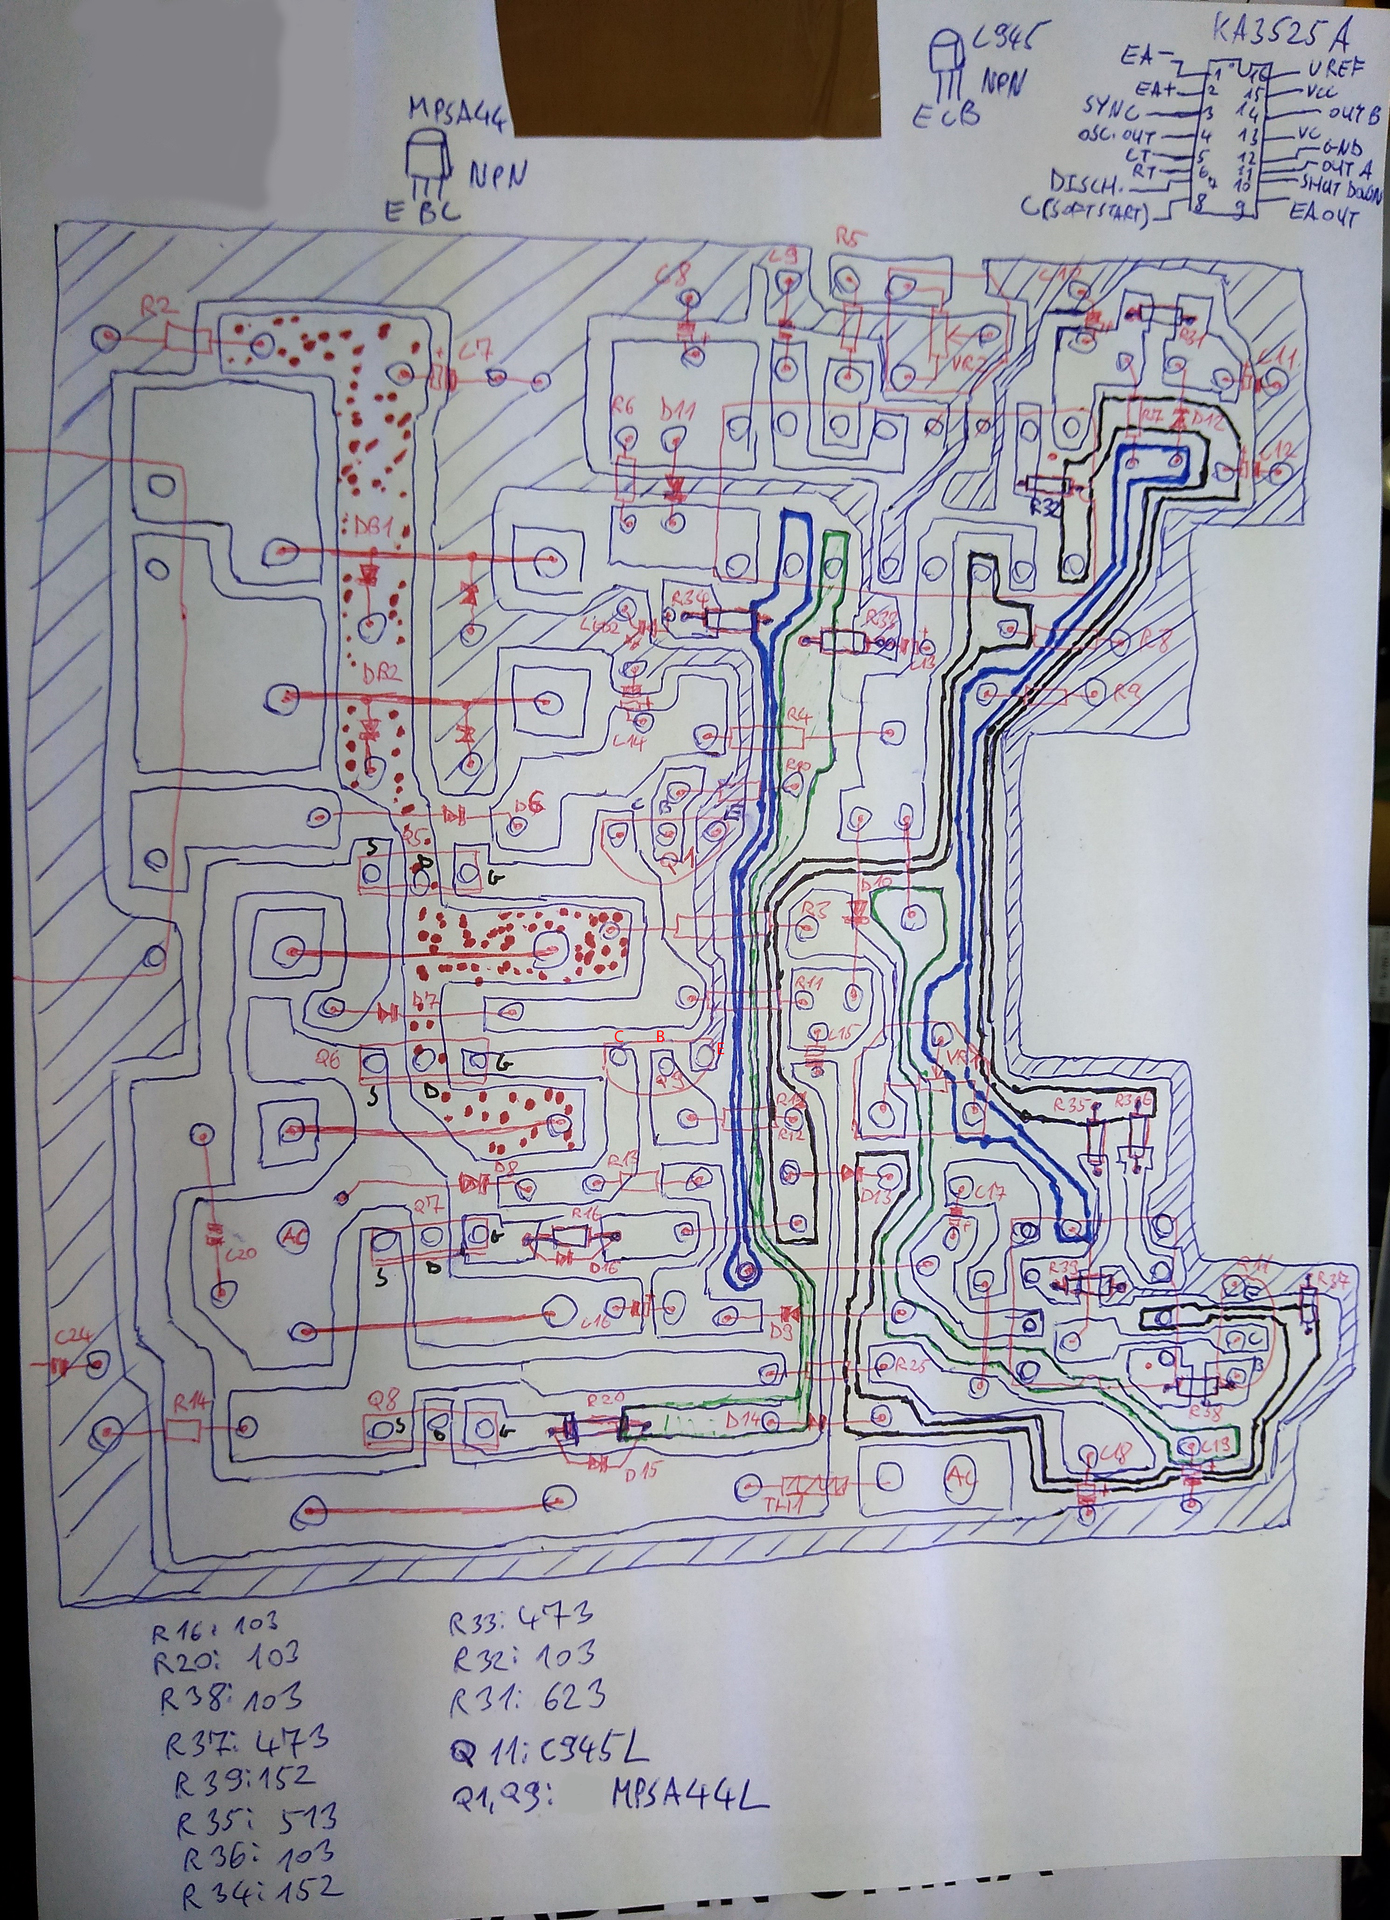 C945
NPN
E C B
MPSA44
NPN
E B C
KA3525A
EA-
EA+
SYNC
OSC.OUT
CT
RT
DISCH.
C(SOFTSTART)
1
2
3
4
5
6
7
8
16
15
14
13
12
11
10
9
VREF
VCC
OUT B
VC
GND
OUT A
SHUT DOWN
EA OUT
R2
C7
C8
C9
R5
VR2
C10
R31
C11
R6
D11
R7
D12
C12
R32
DB1
LED2
R34
R33
C13
R8
DB2
C14
R4
R9
D6
R10
Q5
S
D
G
C
B
E
Q1
R3
D10
D7
R11
C15
Q6
S
D
G
C
B
E
Q9
VR1
R12
R12
R35
R36
D8
R13
D13
C17
AC
C20
Q7
S
D
G
R16
D16
R39
Q11
E
C
B
R37
C16
D9
C24
R25
R38
R14
Q8
S
D
G
R20
D14
D15
C18
C13
TH1
AC
R16: 103
R20: 103
R38: 103
R37: 473
R39: 152
R35: 513
R36: 103
R34: 152
R33: 473
R32: 103
R31: 623
Q11: C945L
Q1,Q9: MPSA44L
MADE IN CHINA